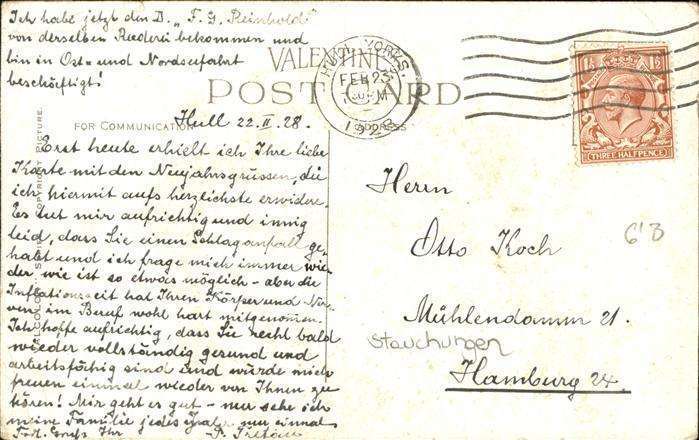 Ich habe jetzt den D. „F. G. Reinhold"
von derselben Reederei bekommen und
bin in Ost= und Nordseefahrt
beschäftigt!
VALENTINE'S
POST CARD
FOR COMMUNICATION
ADDRESS
HULL YORKS.
FEB 23
1928
1½ 1½
THREE HALFPENCE
Hull 22.II.28.
Erst heute erhielt ich Ihre liebe
Karte mit den Neujahrsgrüssen, die
ich hiermit aufs herzlichste erwidere.
Es tut mir aufrichtig und innig
leid, dass Sie einen Schlaganfall ge-
habt und ich frage mich immer wie-
der wie ist so etwas möglich - aber die
Inflationszeit hat Ihren Körper und Ner-
ven im Beruf wohl hart mitgenommen.
Ich hoffe aufrichtig, dass Sie recht bald
wieder vollständig gesund und
arbeitsfähig sind und würde mich
freuen einmal wieder von Ihnen zu
hören! Mir geht es gut - nur sehe ich
meine Familie jedes nur einmal
Gruß Ihr
Herrn
Otto Koch
Mühlendamm 21.
Hamburg 24.
Stauchungen
6'B
VALCOLOUR
COPYRIGHT PICTURE.